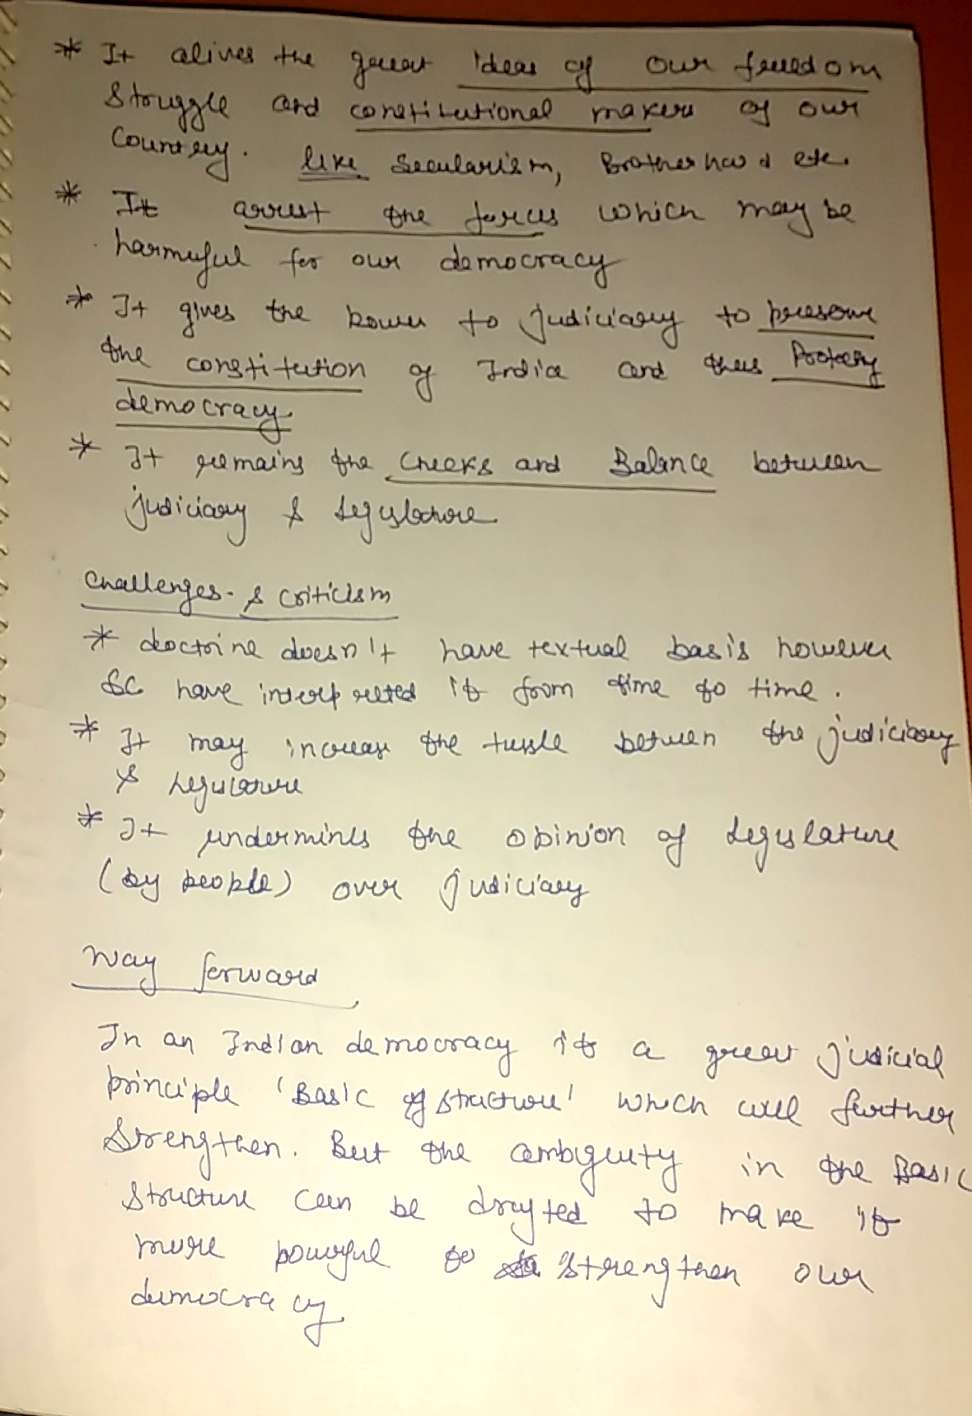 * It alives the great ideas of our freedom
struggle and constitutional makers of our
country. like secularism, Brotherhood etc.
* It arrest the forces which may be
harmuful for our democracy
* It gives the power to judiciary to preserve
the constitution of India and thus
democracy.
* It remains the checks and Balance between
judiciary & legislature
Challenges. & criticism
* doctrine doesn't have textual basis however
SC have interpreted it from time to time.
* It may increase the tussle between the judiciary
& legislature
* It undermines the opinion of legislature
(by people) over judiciary
Way forward
In an Indian democracy its a great judicial
principle 'Basic of structure' which will further
strengthen. But the ambiguty in the Basic
structure can be drafted to make it
more powerful to strengthen our
democracy